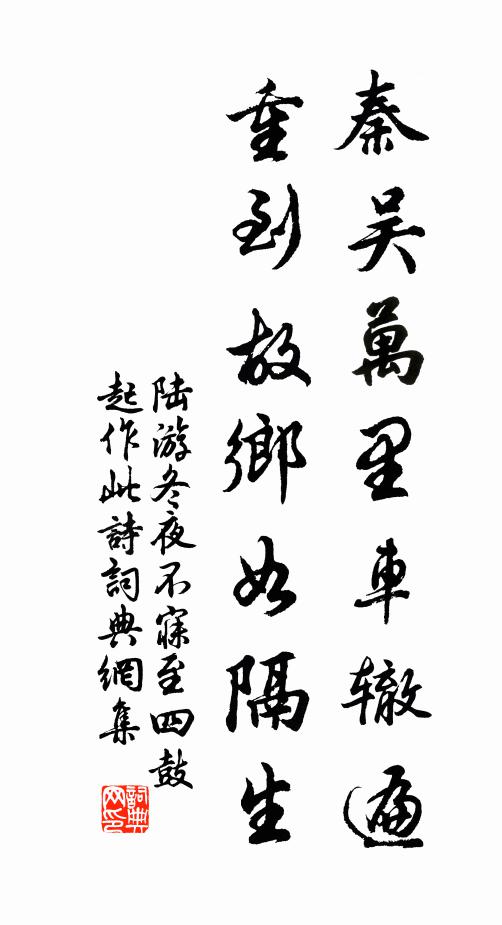 秦吴萬里車辙遍
重到故鄉如隔生
陆游冬夜不寐至四鼓
起作此詩詞典網集
詞典
网印